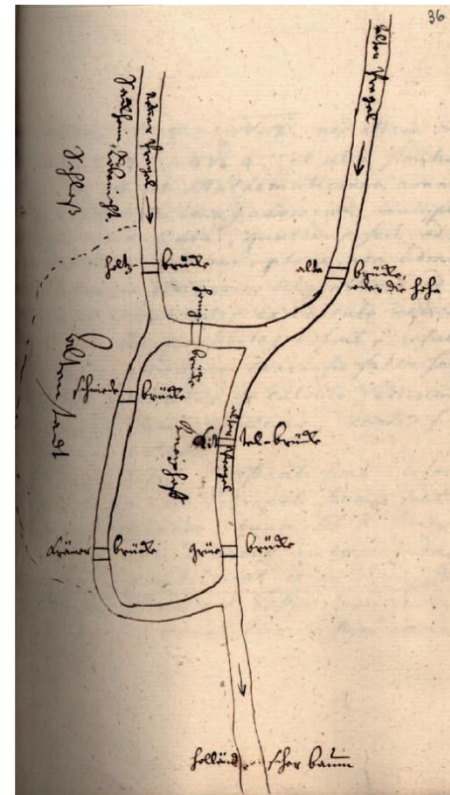 36
alter Pregel
neuer Pregel
Sackheim, Löbenicht.
Schloß
holtz-brücke
alte brücke,
oder die hohe
honig brücke
schmiede brücke
kneiphoff
alter Pregel
kittel-brücke
Krämer brücke
grüne brücke
holländischer baum